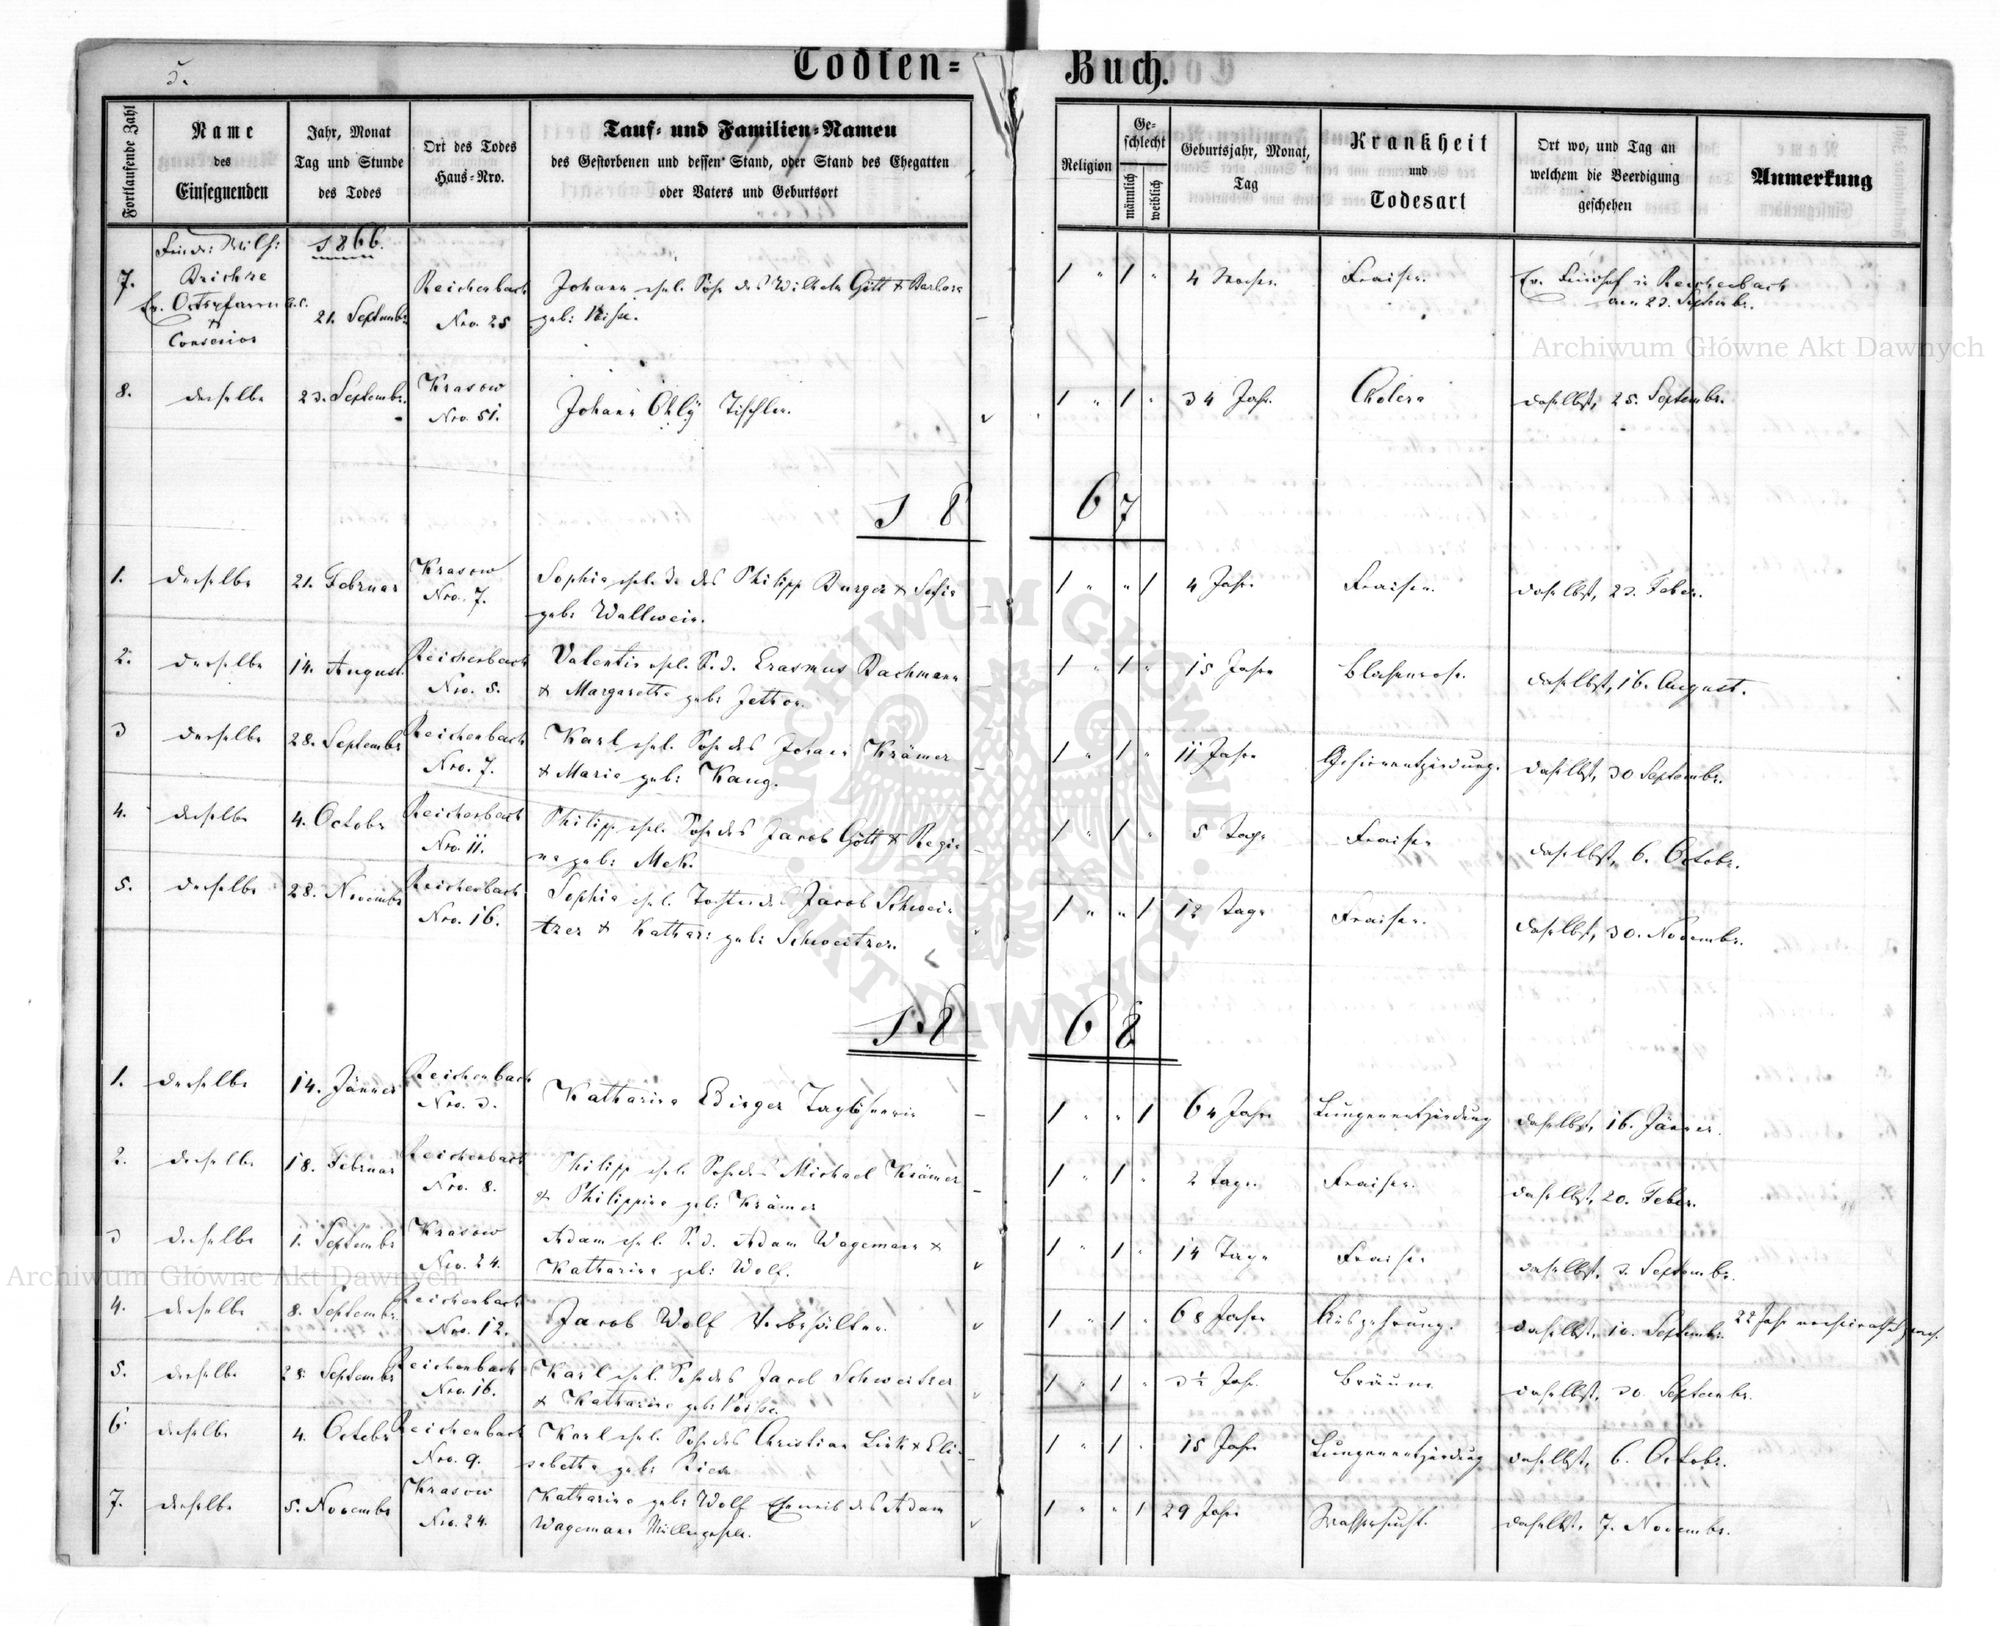 5.
Todten-Buch.
Fortlaufende Zahl
Name
des
Einsegnenden
Jahr, Monat
Tag und Stunde
des Todes
Ort des Todes
Haus-Nro.
Tauf- und Familien-Namen
des Gestorbenen und dessen Stand, oder Stand des Ehegatten
oder Vaters und Geburtsort
Religion
Ge-
schlecht
männlich
weiblich
Geburtsjahr, Monat,
Tag
Krankheit
und
Todesart
Ort wo, und Tag an
welchem die Beerdigung
geschehen
Anmerkung
1866.
7.
21. Septembr
Reichenbach
Nro. 25
Johann ehel. Sohn des Wilhelm Gött & Barbara
geb:
1 " 1 "
4 Wochen
Fraisen.
Ev. Friedhof in Reichenbach
am 23. Septembr.
Consenior
8. derselbe 23. Septembr.
Krasow
Nro. 51.
Johann Ohly Tischler.
1 " 1 " 34 Jahr Cholera daselbst, 25. Septembr.
1867
1. derselbe 21. Februar
Krasow
Nro. 7.
Sophia ehel. To des Philipp Burger & Sofia
geb: Wallwein.
1 " " 1 4 Jahr Fraisen. daselbst, 23. Feber.
2. derselbe 14. August.
Reichenbach
Nro. 5.
Valentin ehel. S. d. Erasmus Bachmann
& Margaretha geb:
1 " 1 " 15 Jahre Blasenrose. daselbst, 16. August.
3 derselbe 28. Septembr
Reichenbach
Nro. 7.
Karl ehel. Sohn des Johann Krämer
& Maria geb: Kang.
1 " 1 " 11 Jahre Gehirnentzündung. daselbst, 30 Septembr.
4. derselbe 4. Octobr
Reichenbach
Nro. 11.
Philipp ehel. Sohn des Jacob Gött & Regi-
na geb: Mek.
1 " 1 " 5 Tage Fraisen daselbst, 6. Octobr.
5. derselbe 28. Novembr
Reichenbach
Nro. 16.
Sophia ehel. Tochter des Jacob Schwei-
tzer & Kathar: geb: Schweitzer.
1 " " 1 12 Tage Fraisen. daselbst, 30. Novembr.
1868
1. derselbe 14. Jänner
Reichenbach
Nro. 3.
Katharina Ebinger Taglöhnerin
1 " " 1 64 Jahre Lungenentzündung daselbst, 16. Jänner.
2. derselbe 18. Februar
Reichenbach
Nro. 8.
Philipp ehel. Sohn des Michael Krämer
& Philippina geb: Krämer
1 " 1 " 2 Tage. Fraisen. daselbst, 20. Feber.
3 derselbe 1. Septembr
Krasow
Nro. 24.
Adam ehel. S. d. Adam Wagemann &
Katharina geb: Wolf.
1 " 1 " 14 Tage Fraisen daselbst, 3. Septembr.
4. derselbe 8. Septembr.
Reichenbach
Nro. 12.
Jacob Wolf Vorbehälter.
1 " 1 " 68 Jahre Auszehrung. daselbst, 10. Septembr. 22 Jahr verheirathet gewes.
5. derselbe 28. Septembr
Reichenbach
Nro. 16.
Karl ehel. Sohn des Jacob Schweitzer
& Katharina geb:
1 " 1 " 3½ Jahr. Bräune daselbst, 30. Septembr.
6 derselbe 4. Octobr
Reichenbach
Nro. 9.
Karl ehel. Sohn des Christian Link & Eli-
sabetha geb:
1 " 1 " 15 Jahr Lungenentzündung daselbst, 6. Octobr.
7. derselbe 5. Novembr
Krasow
Nro. 24.
Katharina geb: Wolf Eheweib des Adam
Wagemann Müllergeselle.
1 " " 1 29 Jahre Wassersucht. daselbst, 7. Novembr.
Archiwum Główne Akt Dawnych
Archiwum Główne Akt Dawnych
ARCHIWUM GŁÓWNE AKT DAWNYCH